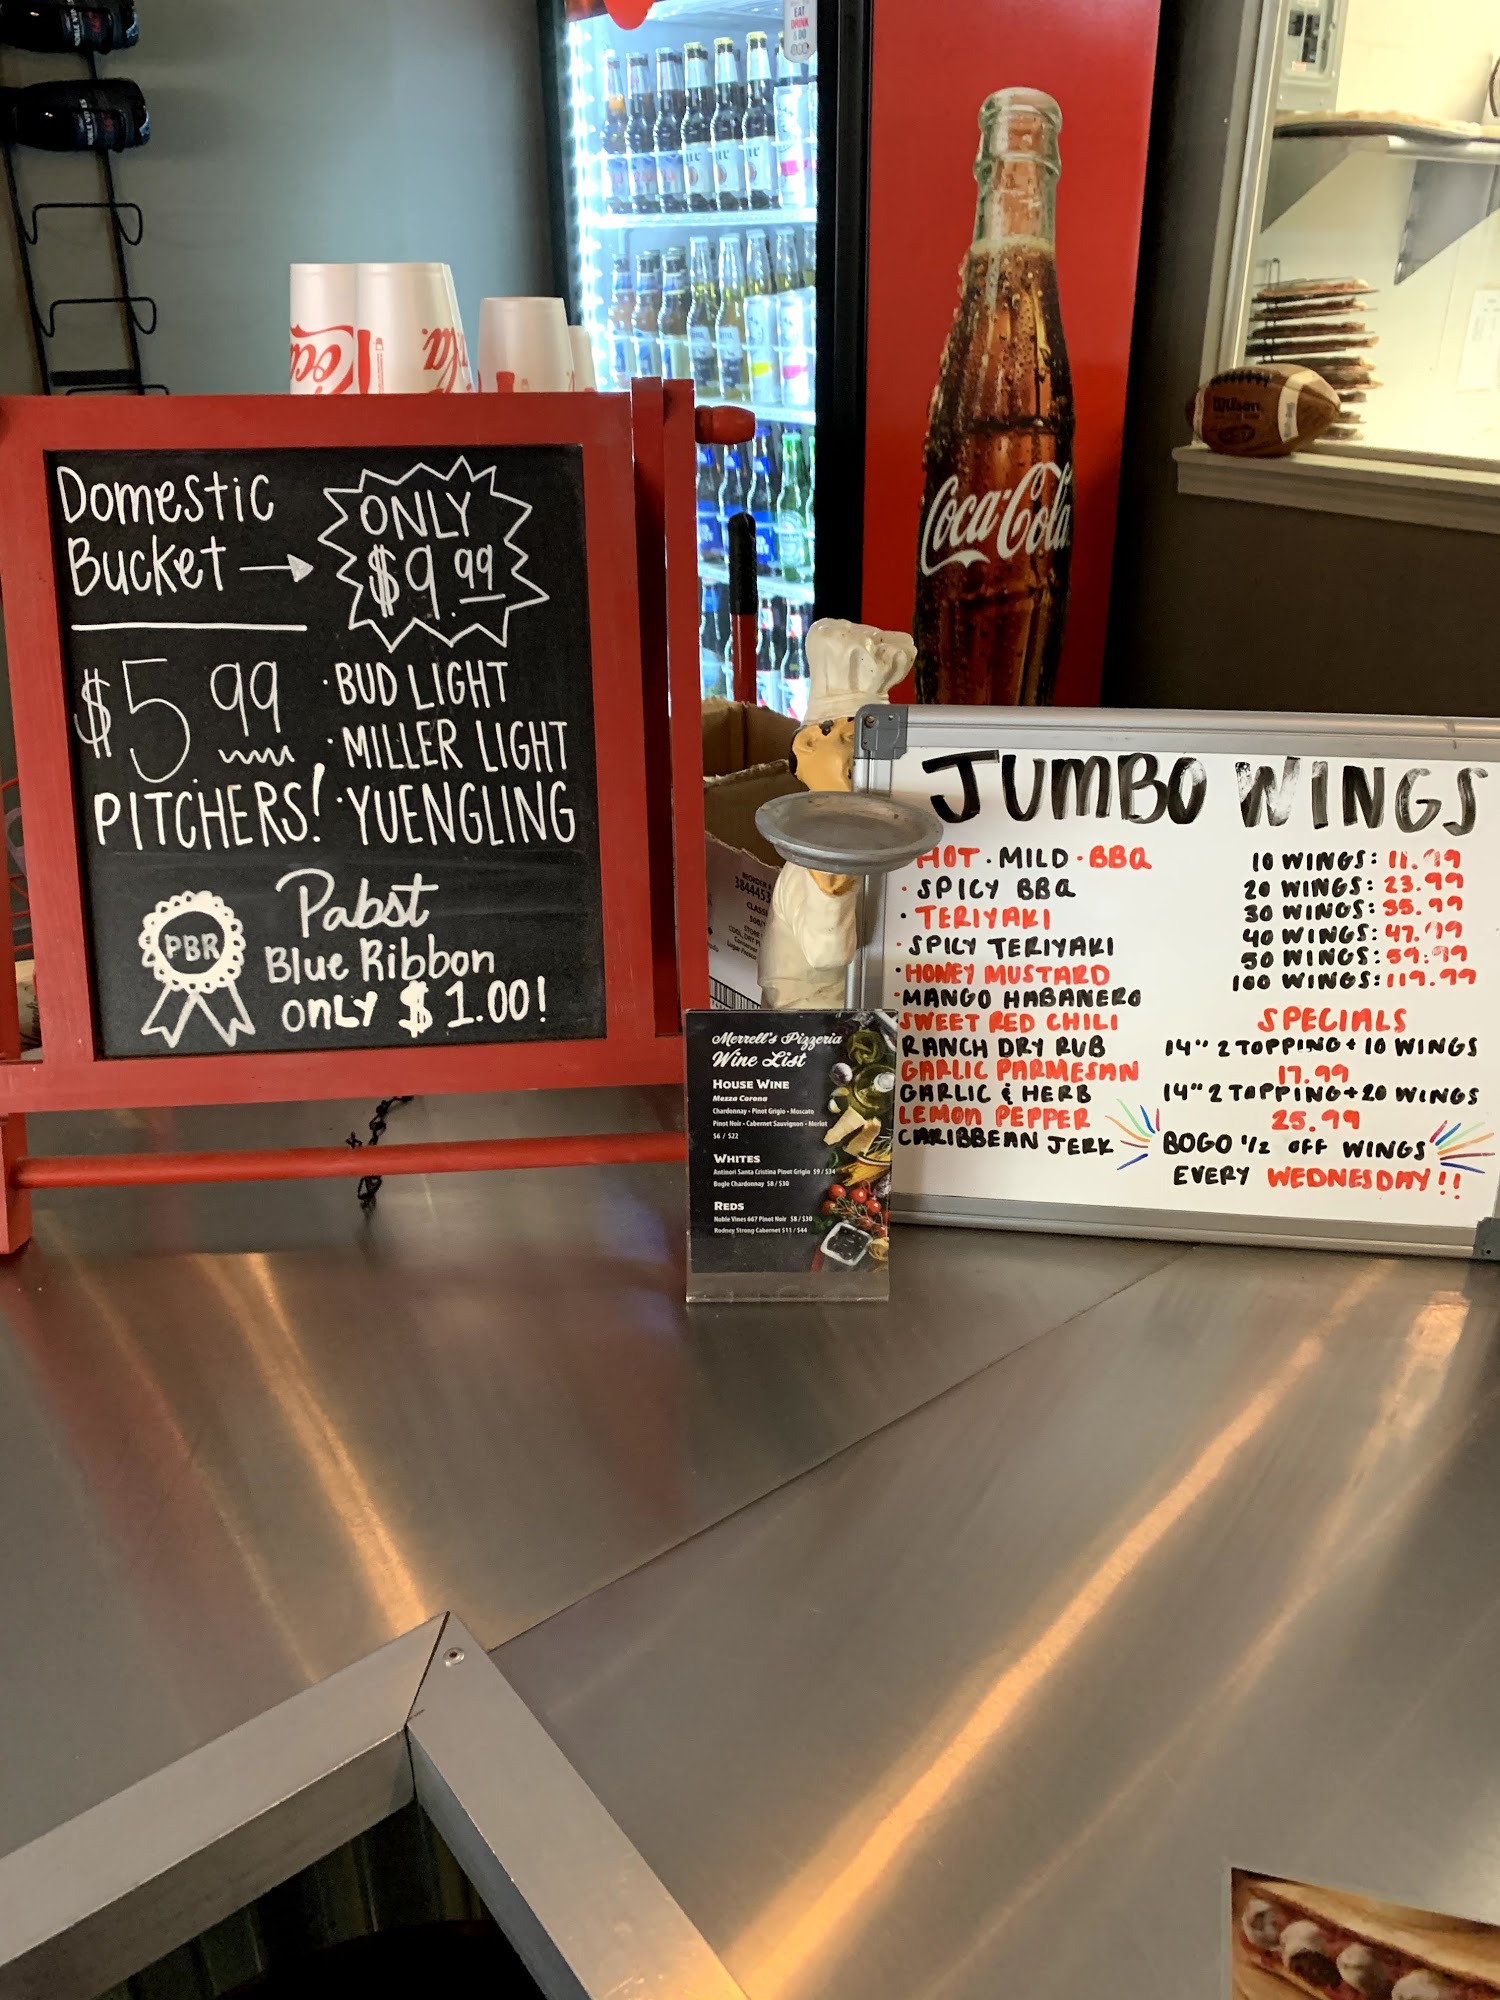 EAT
DRINK
& DO
Coca-Cola
Wilson
Domestic
Bucket →
ONLY
$9.99
$5.99
PITCHERS!
· BUD LIGHT
· MILLER LIGHT
· YUENGLING
PBR
Pabst
Blue Ribbon
only $1.00!
JUMBO WINGS
HOT · MILD · BBQ
· SPICY BBQ
· TERIYAKI
· SPICY TERIYAKI
· HONEY MUSTARD
· MANGO HABANERO
SWEET RED CHILI
RANCH DRY RUB
GARLIC PARMESAN
GARLIC & HERB
LEMON PEPPER
CARIBBEAN JERK
10 WINGS: 11.99
20 WINGS: 23.99
30 WINGS: 35.99
40 WINGS: 47.99
50 WINGS: 59.99
100 WINGS: 119.99
SPECIALS
14" 2 TOPPING + 10 WINGS
17.99
14" 2 TOPPING + 20 WINGS
25.99
BOGO 1/2 OFF WINGS
EVERY WEDNESDAY!!
Merrell's Pizzeria
Wine List
HOUSE WINE
Mezza Corona
Chardonnay • Pinot Grigio • Moscato
Pinot Noir • Cabernet Sauvignon • Merlot
$6 / $22
WHITES
Antinori Santa Cristina Pinot Grigio $9 / $34
Bogle Chardonnay $8 / $30
REDS
Noble Vines 667 Pinot Noir $8 / $30
Rodney Strong Cabernet $11 / $44